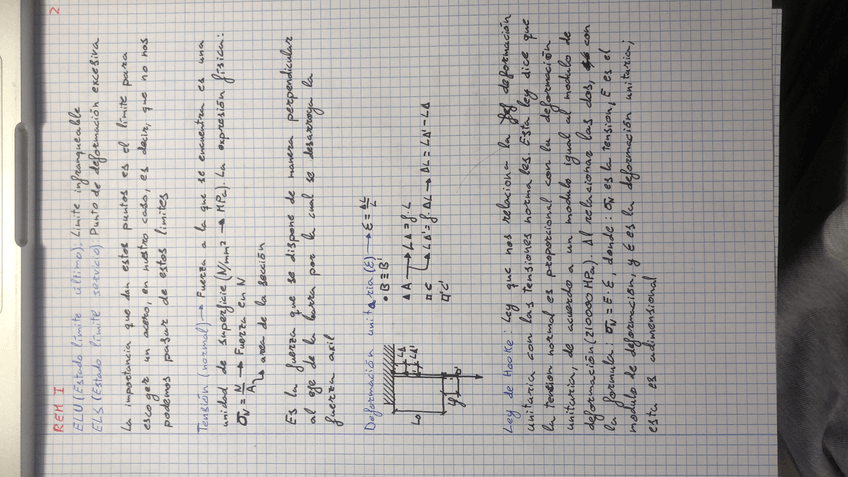 REM I
2
ELU (Estado límite último). Límite infranqueable
ELS (Estado límite servicio). Punto de deformación excesiva
La importancia que dan estos puntos es el límite para
escoger un acero, en nuestro caso, es decir, que no nos
podemos pasar de estos límites
Tensión (normal) → Fuerza a la que se encuentra es una
unidad de superficie (N/mm² → MPa). La expresión física:
σN = N/A → Fuerza en N
→ area de la sección
Es la fuerza que se dispone de manera perpendicular
al eje de la barra por la cual se desarroya la
fuerza axil
Deformación unitaria (ε) → ε = ΔL/L
• B ≡ B'
▲ A → LA = f·L
□ C → LA' = f·ΔL → ΔL = LA' - LA
□' C'
L0
LA
LA'
Ley de Hooke: Ley que nos relaciona la deformación
unitaria con las tensiones normales. Esta ley dice que
la tension normal es proporcional con la deformación
unitaria, de acuerdo a un modulo igual al modulo de
deformación (210000 MPa). Al relacionar las dos, con
la formula: σN = E·ε, donde: σN es la tension, E es el
modulo de deformación, y ε es la deformación unitaria;
esta es adimensional